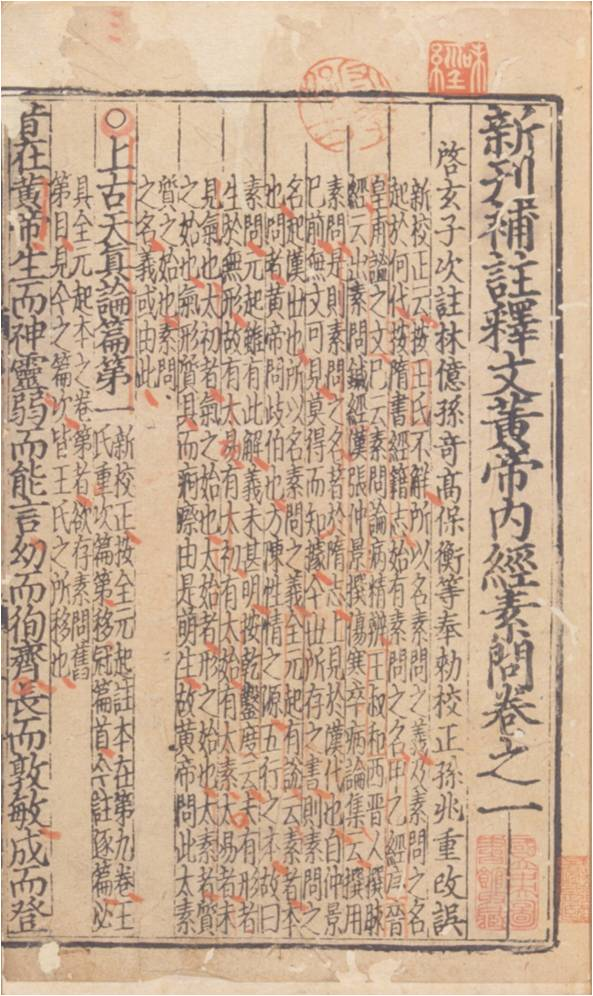 味經
新刊補註釋文黃帝內經素問卷之一
啓玄子次註林億孫奇高保衡等奉勅校正孫兆重改誤
新校正云按王氏不解所以名素問之義及素問之名
起於何代按隋書經籍志始有素問之名甲乙經序晉
皇甫謐之文已云素問論病精辨王叔和西晉人撰脉
經云出素問鍼經漢張仲景撰傷寒卒病論集云撰用
素問是則素問之名著於隋志上見於漢代也自仲景
已前無文可見莫得而知據今世所存之書則素問之
名起漢世也所以名素問之義全元起有説云素者本
也問者黃帝問歧伯也方陳性情之源五行之本故曰
素問元起雖有此解義未甚明按乾鑿度云夫有形者
生於無形故有太易有太初有太始有太素太易者未
見氣也太初者氣之始也太始者形之始也太素者質
之始也氣形質具而痾瘵由是萌生故黃帝問此太素
質之始也素問
之名義或由此
○上古天真論篇第一 新校正按全元起註本在第九卷王
氏重次篇第移冠篇首今註逐篇必
具全元起本之卷第者欲存素問舊
第目見今之篇次皆王氏之所移也
昔在黃帝生而神靈弱而能言幼而徇齊長而敦敏成而登